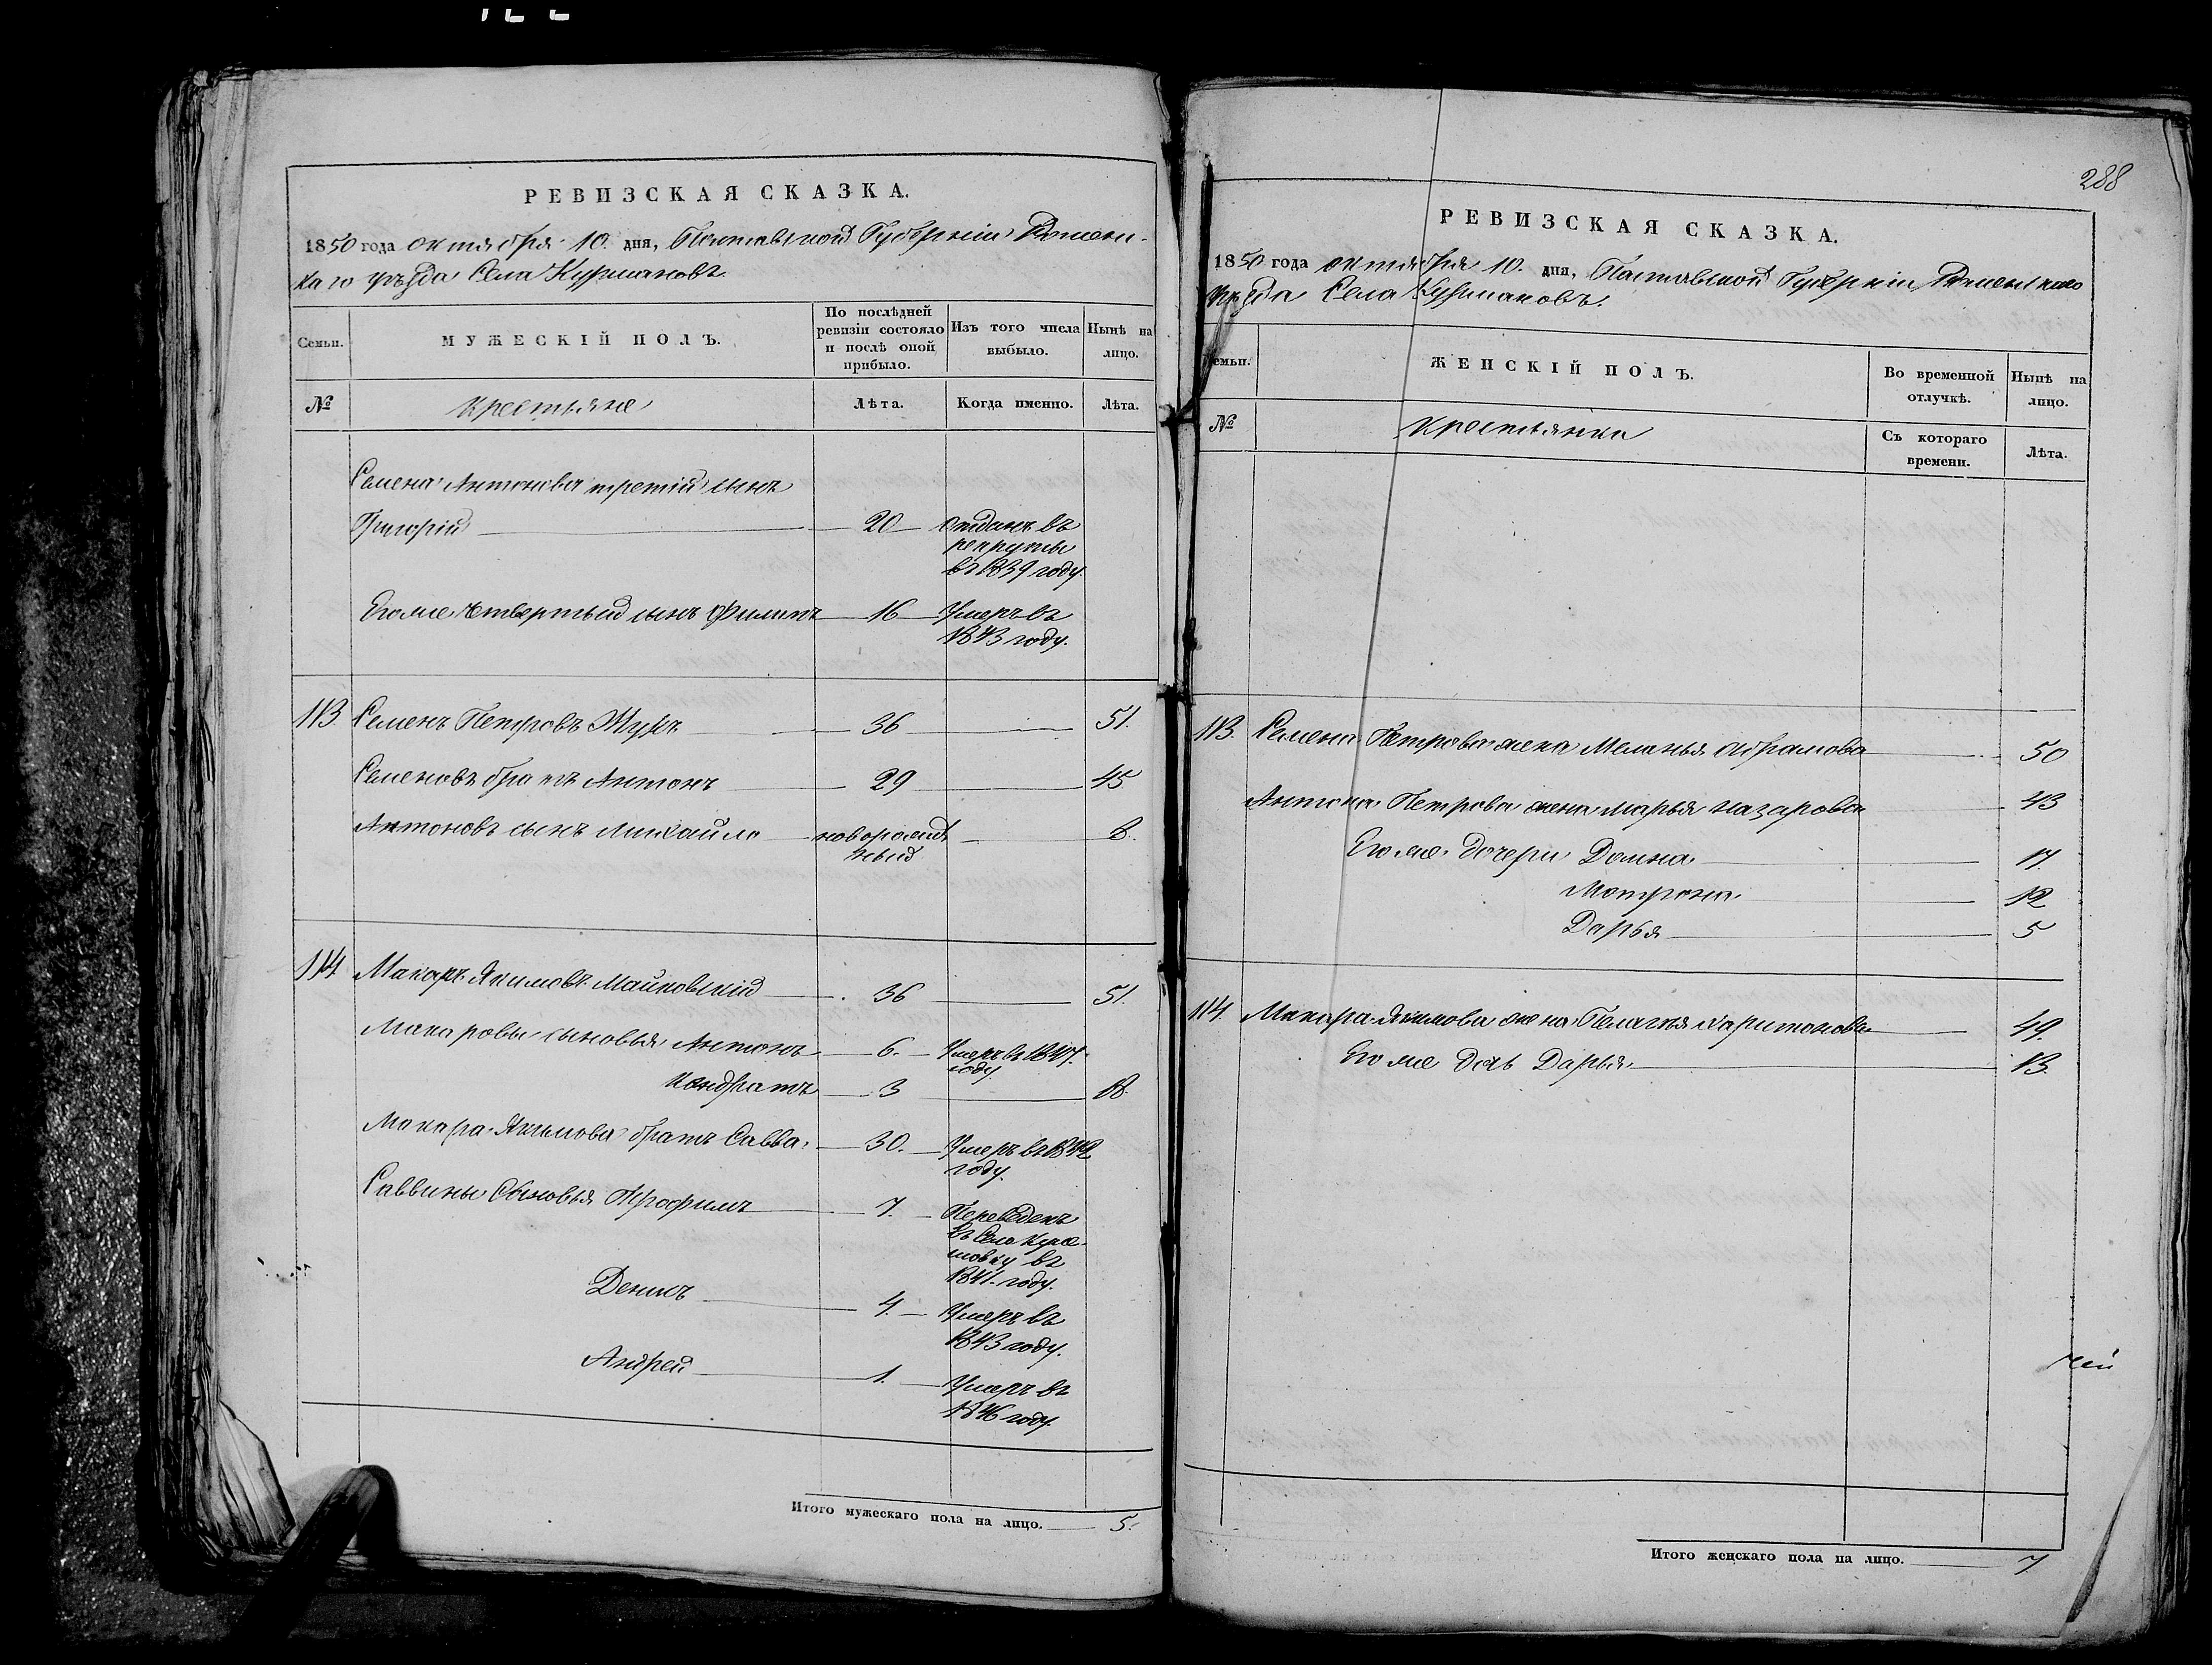 РЕВИЗСКАЯ СКАЗКА.
1850 года октября 10. дня, Полтавской Губерніи Ромен-
скаго уѣзда Села Курмановъ.
Семьи.
МУЖЕСКІЙ ПОЛЪ.
По послѣдней ревизіи состояло и послѣ оной прибыло.
Изъ того числа выбыло.
Нынѣ на лицо.
№
Крестьяне
Лѣта.
Когда именно.
Лѣта.
Семена Антонова третій сынъ
Григорій 20 отданъ въ
рекруты
въ 1839 году.
Его же четвертый сынъ Филипъ 16 Умеръ въ
1843 году.
113. Семенъ Петровъ Жукъ 36 51.
Семеновъ братъ Антонъ 29 45
Антоновъ сынъ Михайло новорожд 8.
ный
114 Макаръ Якимовъ Майковскій 36 51.
Макаровы сыновья Антонъ 6. Умеръ въ 1847.
году.
Кондратъ 3 18.
Макара Якимова братъ Савва 30. Умеръ въ 1842
году.
Саввины Сыновья Трофимъ 7. Переведенъ
въ Село
въ
1841. году.
Денисъ 4. Умеръ въ
1843 году.
Андрей 1. Умеръ въ
1846 году.
Итого мужескаго пола на лицо. 5.
288
РЕВИЗСКАЯ СКАЗКА.
1850 года октября 10. дня, Полтавской Губерніи Роменскаго
уѣзда Села Курмановъ.
Семьи.
ЖЕНСКІЙ ПОЛЪ.
Во временной отлучкѣ.
Нынѣ на лицо.
№
Крестьянки
Съ котораго времени.
Лѣта.
113. Семена Петрова жена Меланья Абрамова 50
Антона Петрова жена Марья Назарова 43
Его же дочери Домна 17.
Матрона 12
Дарья 5
114. Макара Якимова жена Пелагея Харитонова 49.
Его же дочь Дарья 13.
Итого женскаго пола на лицо. 7